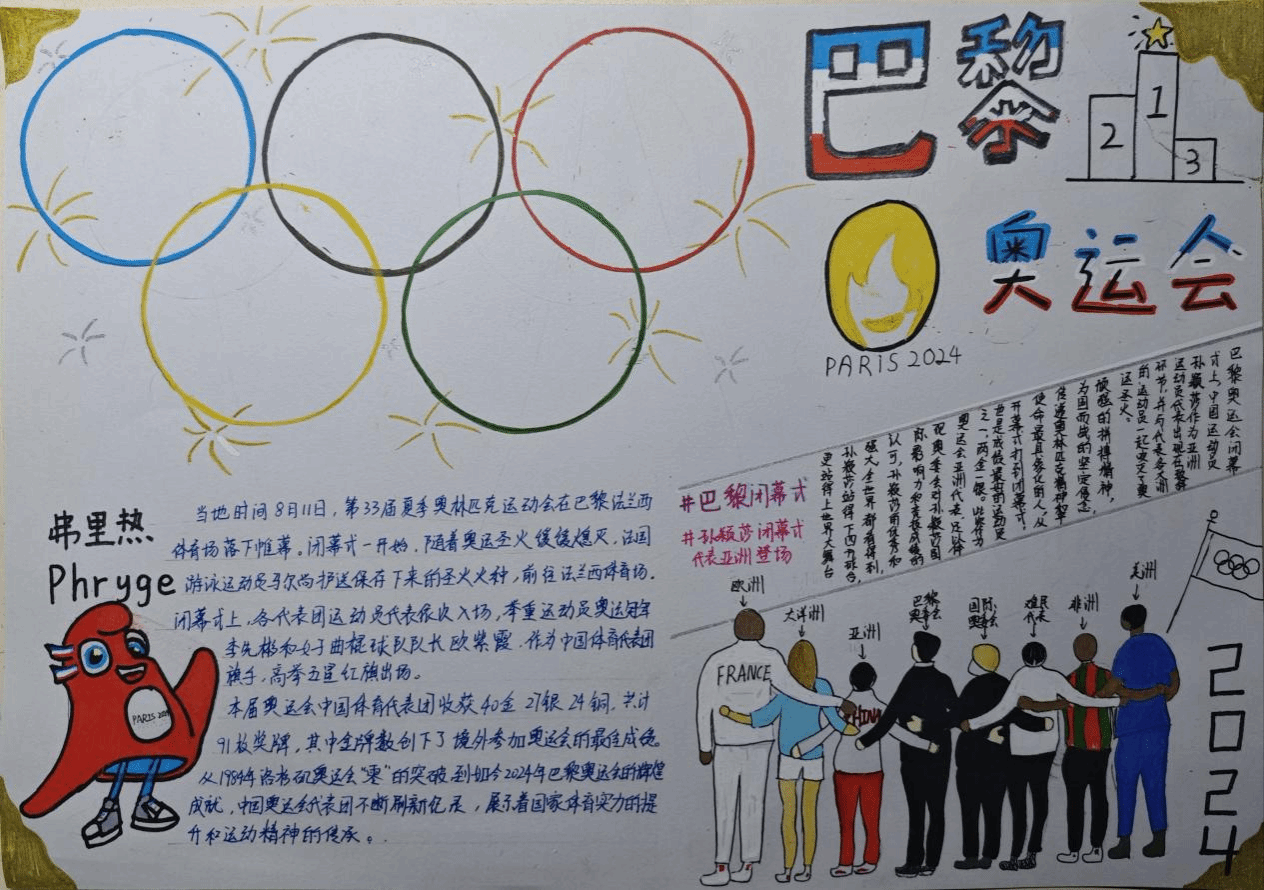 巴黎
奥运会
1
2
3
PARIS 2024
弗里热
Phryge
PARIS 2024
当地时间8月11日，第33届夏季奥林匹克运动会在巴黎法兰西
体育场落下帷幕。闭幕式一开始，随着奥运圣火缓缓熄灭，法国
游泳运动员马尔尚护送保存下来的圣火火种，前往法兰西体育场。
闭幕式上，各代表团运动员代表依次入场，举重运动员奥运冠军
李发彬和女子曲棍球队队长欧紫霞，作为中国体育代表团
旗手，高举五星红旗出场。
本届奥运会中国体育代表团收获40金 27银 24铜，共计
91枚奖牌，其中金牌数创下了境外参加奥运会的最佳成绩。
从1984年洛杉矶奥运会“零”的突破到如今2024年巴黎奥运会的辉煌
成就，中国奥运会代表团不断刷新，展示着国家体育实力的提
升和运动精神的传承。
巴黎奥运会闭幕
式上，中国运动员
孙颖莎作为亚洲
运动员代表出现在
环节，并与代表各大洲
的运动员一起吹灭了奥
运圣火。
顽强的拼搏精神，
为国而战的坚定信念
传递奥林匹克精神
使命最具象化的人，从
开幕式打到闭幕式，
也是成绩最好的运动员
之一，两金一银。
奥运会亚洲代表，足以体
现奥委会对孙颖莎国
际影响力和竞技成绩的
认可，孙颖莎用优秀和
强大，全世界都看得到，
孙颖莎站得下四方擂台，
更站得上世界大舞台
#巴黎闭幕式
#孙颖莎闭幕式
代表亚洲登场
欧洲
大洋洲
亚洲
巴黎
奥委会
国际
奥委会
难民
代表
非洲
美洲
FRANCE
CHINA
2024